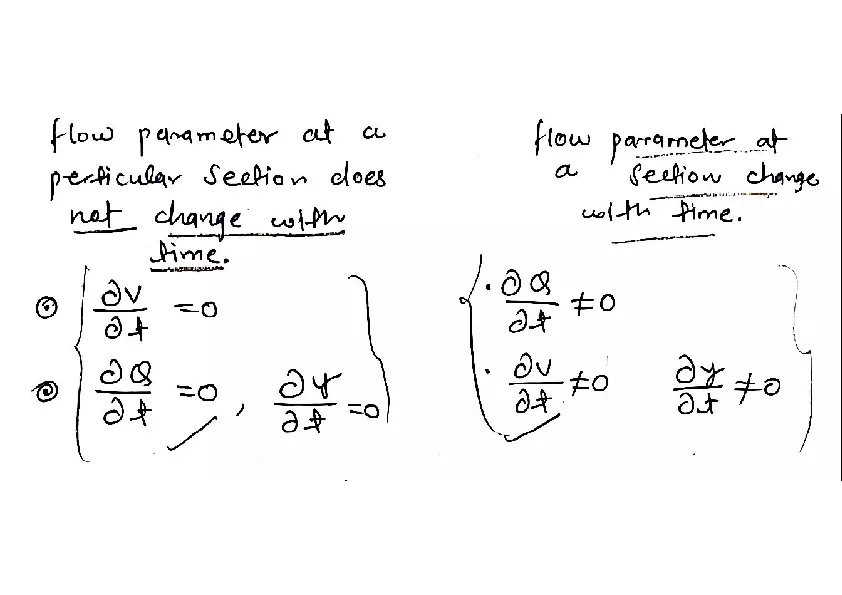 flow parameter at a
perticular Section does
not change with
time.
∂v/∂t =0
∂Q/∂t =0 , ∂y/∂t =0
flow parameter at
a Section change
with time.
∂Q/∂t ≠0
∂v/∂t ≠0 ∂y/∂t ≠0